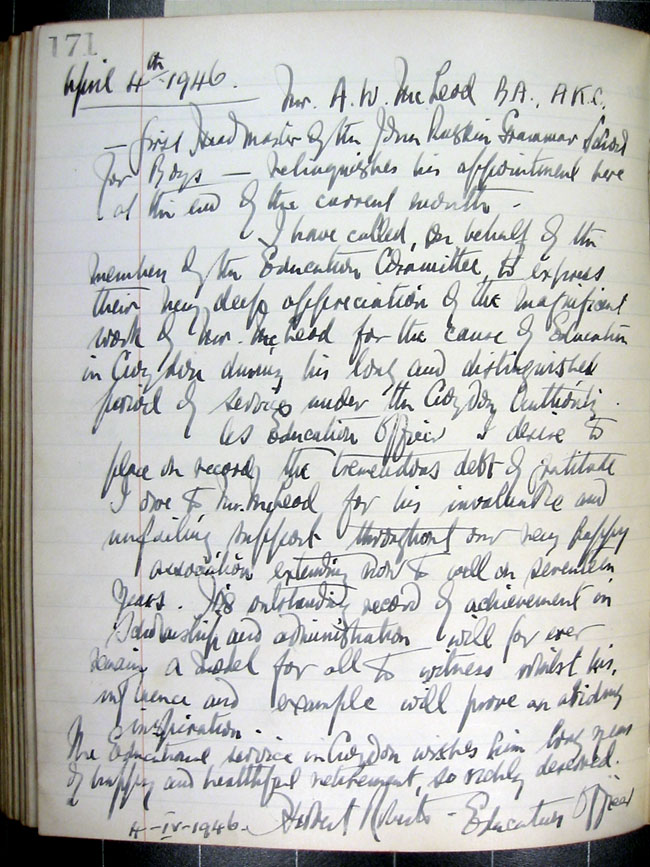 171
April 4th 1946.
Mr. A. W. McLead B.A., A.K.C.,
— first Headmaster of the John Ruskin Grammar School
for Boys — relinquishes his appointment here
at the end of the current month.
I have called, on behalf of the
members of the Education Committee, to express
their very deep appreciation of the magnificent
work of Mr. McLead for the cause of Education
in Croydon during his long and distinguished
period of service under the Croydon Authority.
As Education Officer I desire to
place on record the tremendous debt of gratitude
I owe to Mr. McLead for his invaluable and
unfailing support throughout our very happy
association extending now to well on seventeen
years. His outstanding record of achievement in
Scholarship and administration will for ever
remain a model for all to witness whilst his
influence and example will prove an abiding
inspiration.
The Educational service in Croydon wishes him long years
of happy and healthful retirement, so richly deserved.
4-IV-1946. Herbert Roberts - Education Officer